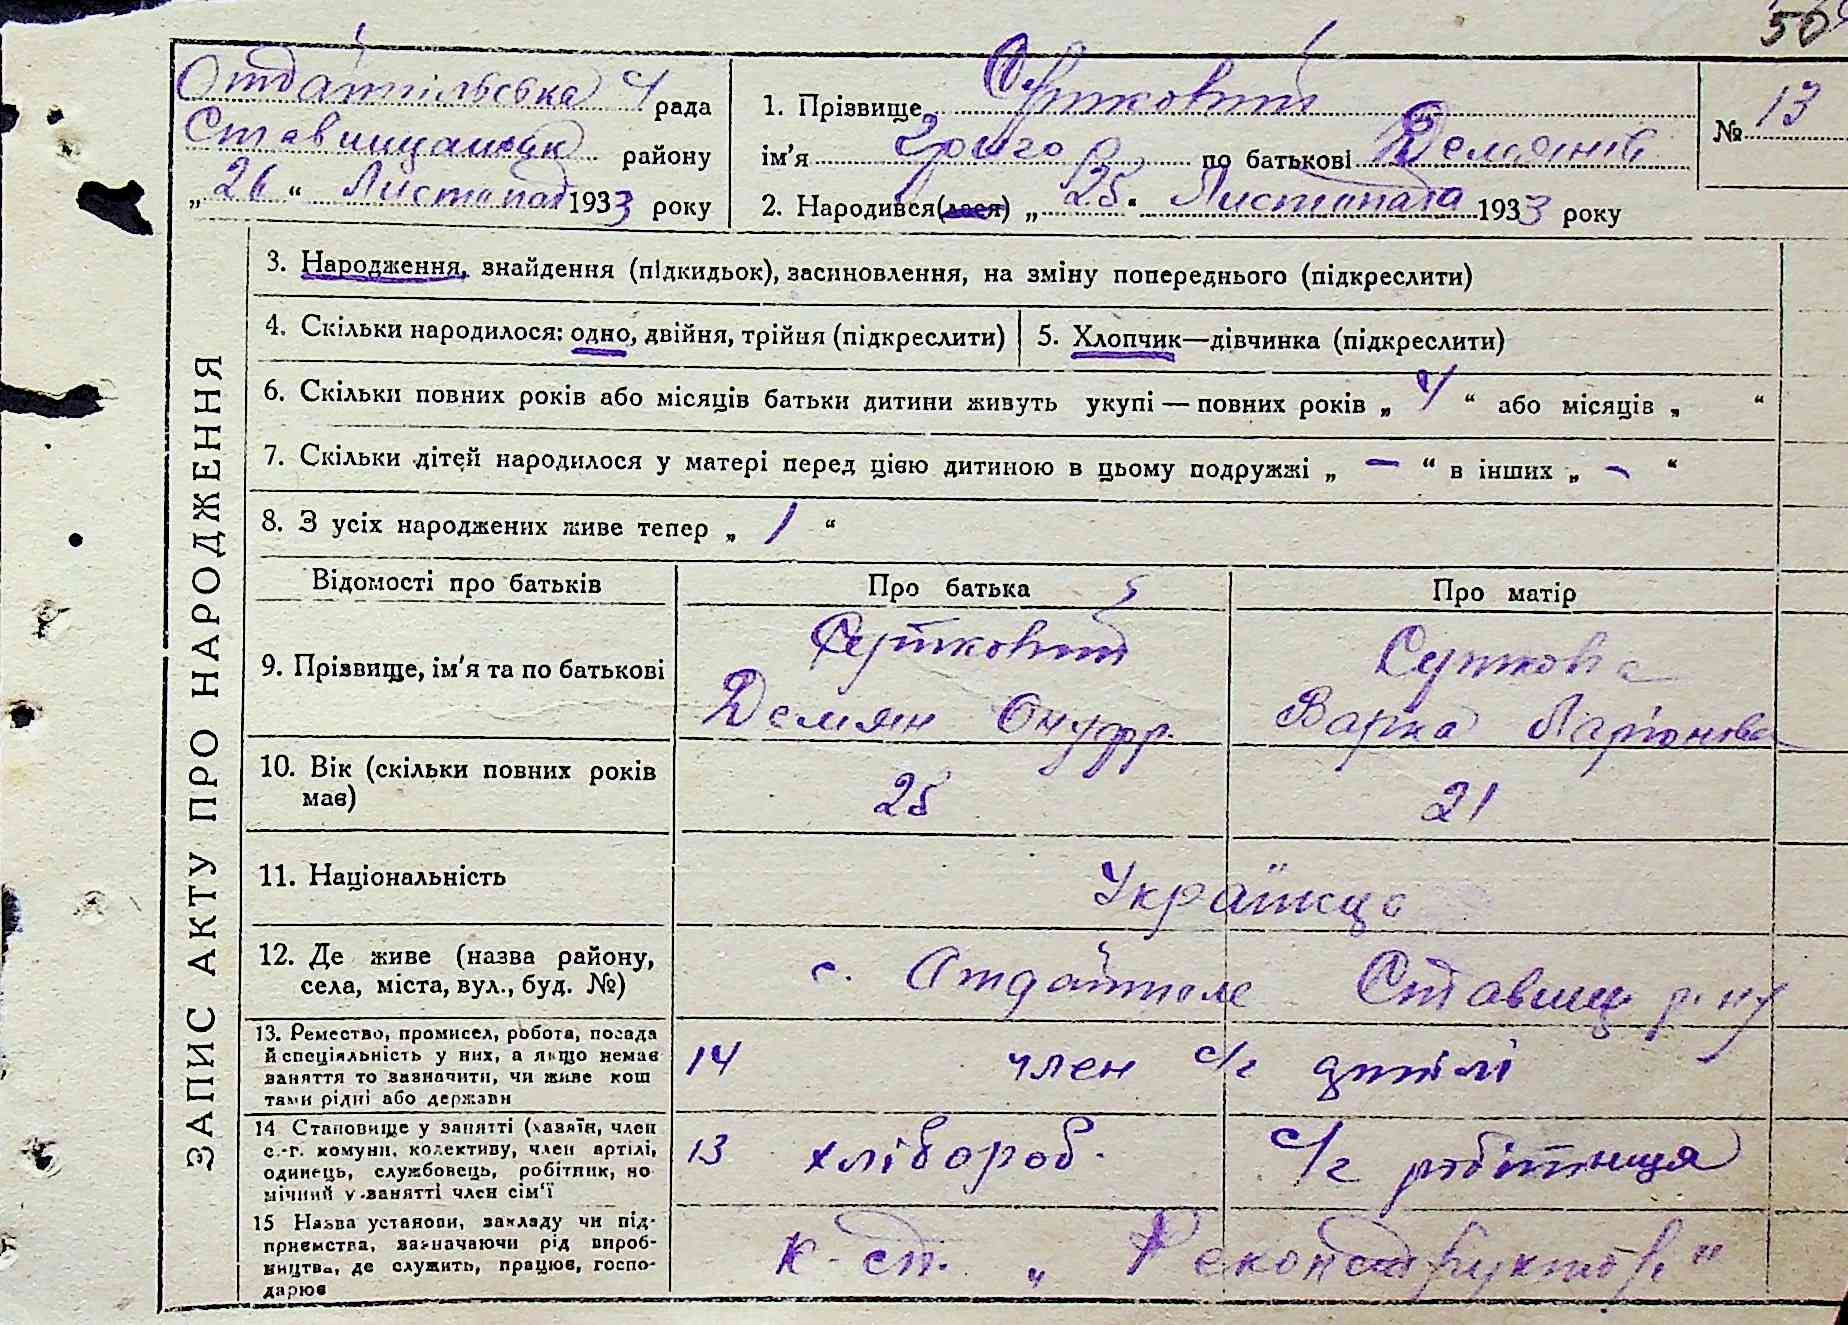 50
Отдайпільська с/рада
Ставищанськ. району
„26“ Листопад 1933 року
1. Прізвище
ім'я Григо по батькові Демянів
2. Народився(лася) „25“ Листопада 1933 року
№ 13
ЗАПИС АКТУ ПРО НАРОДЖЕННЯ
3. Народження, знайдення (підкидьок), засиновлення, на зміну попереднього (підкреслити)
4. Скільки народилося: одно, двійня, трійня (підкреслити)
5. Хлопчик—дівчинка (підкреслити)
6. Скільки повних років або місяців батьки дитини живуть укупі — повних років „ 4 “ або місяців „ “
7. Скільки дітей народилося у матері перед цією дитиною в цьому подружжі „ — “ в інших „ - “
8. З усіх народжених живе тепер „ 1 “
Відомості про батьків
Про батька
Про матір
9. Прізвище, ім'я та по батькові
Демян Онуфр.
Варка Ларіонова
10. Вік (скільки повних років
має)
25
21
11. Національність
Українці
12. Де живе (назва району,
села, міста, вул., буд. №)
с. Отдайполе Ставищ р-ну
13. Ремество, промисел, робота, посада
й спеціяльність у них, а якщо немає
заняття то зазначити, чи живе кош
тами рідні або держави
14 член с/г артілі
14 Становище у занятті (хазяїн, член
с.-г. комуни, колективу, член артілі,
одинець, службовець, робітник, по
мічний у занятті член сім'ї
13 хлібороб.
с/г робітниця
15 Назва установи, закладу чи під-
приємства, зазначаючи рід вироб-
ництва, де служить, працює, госпо-
дарює
к-сп. „Реконструктор“